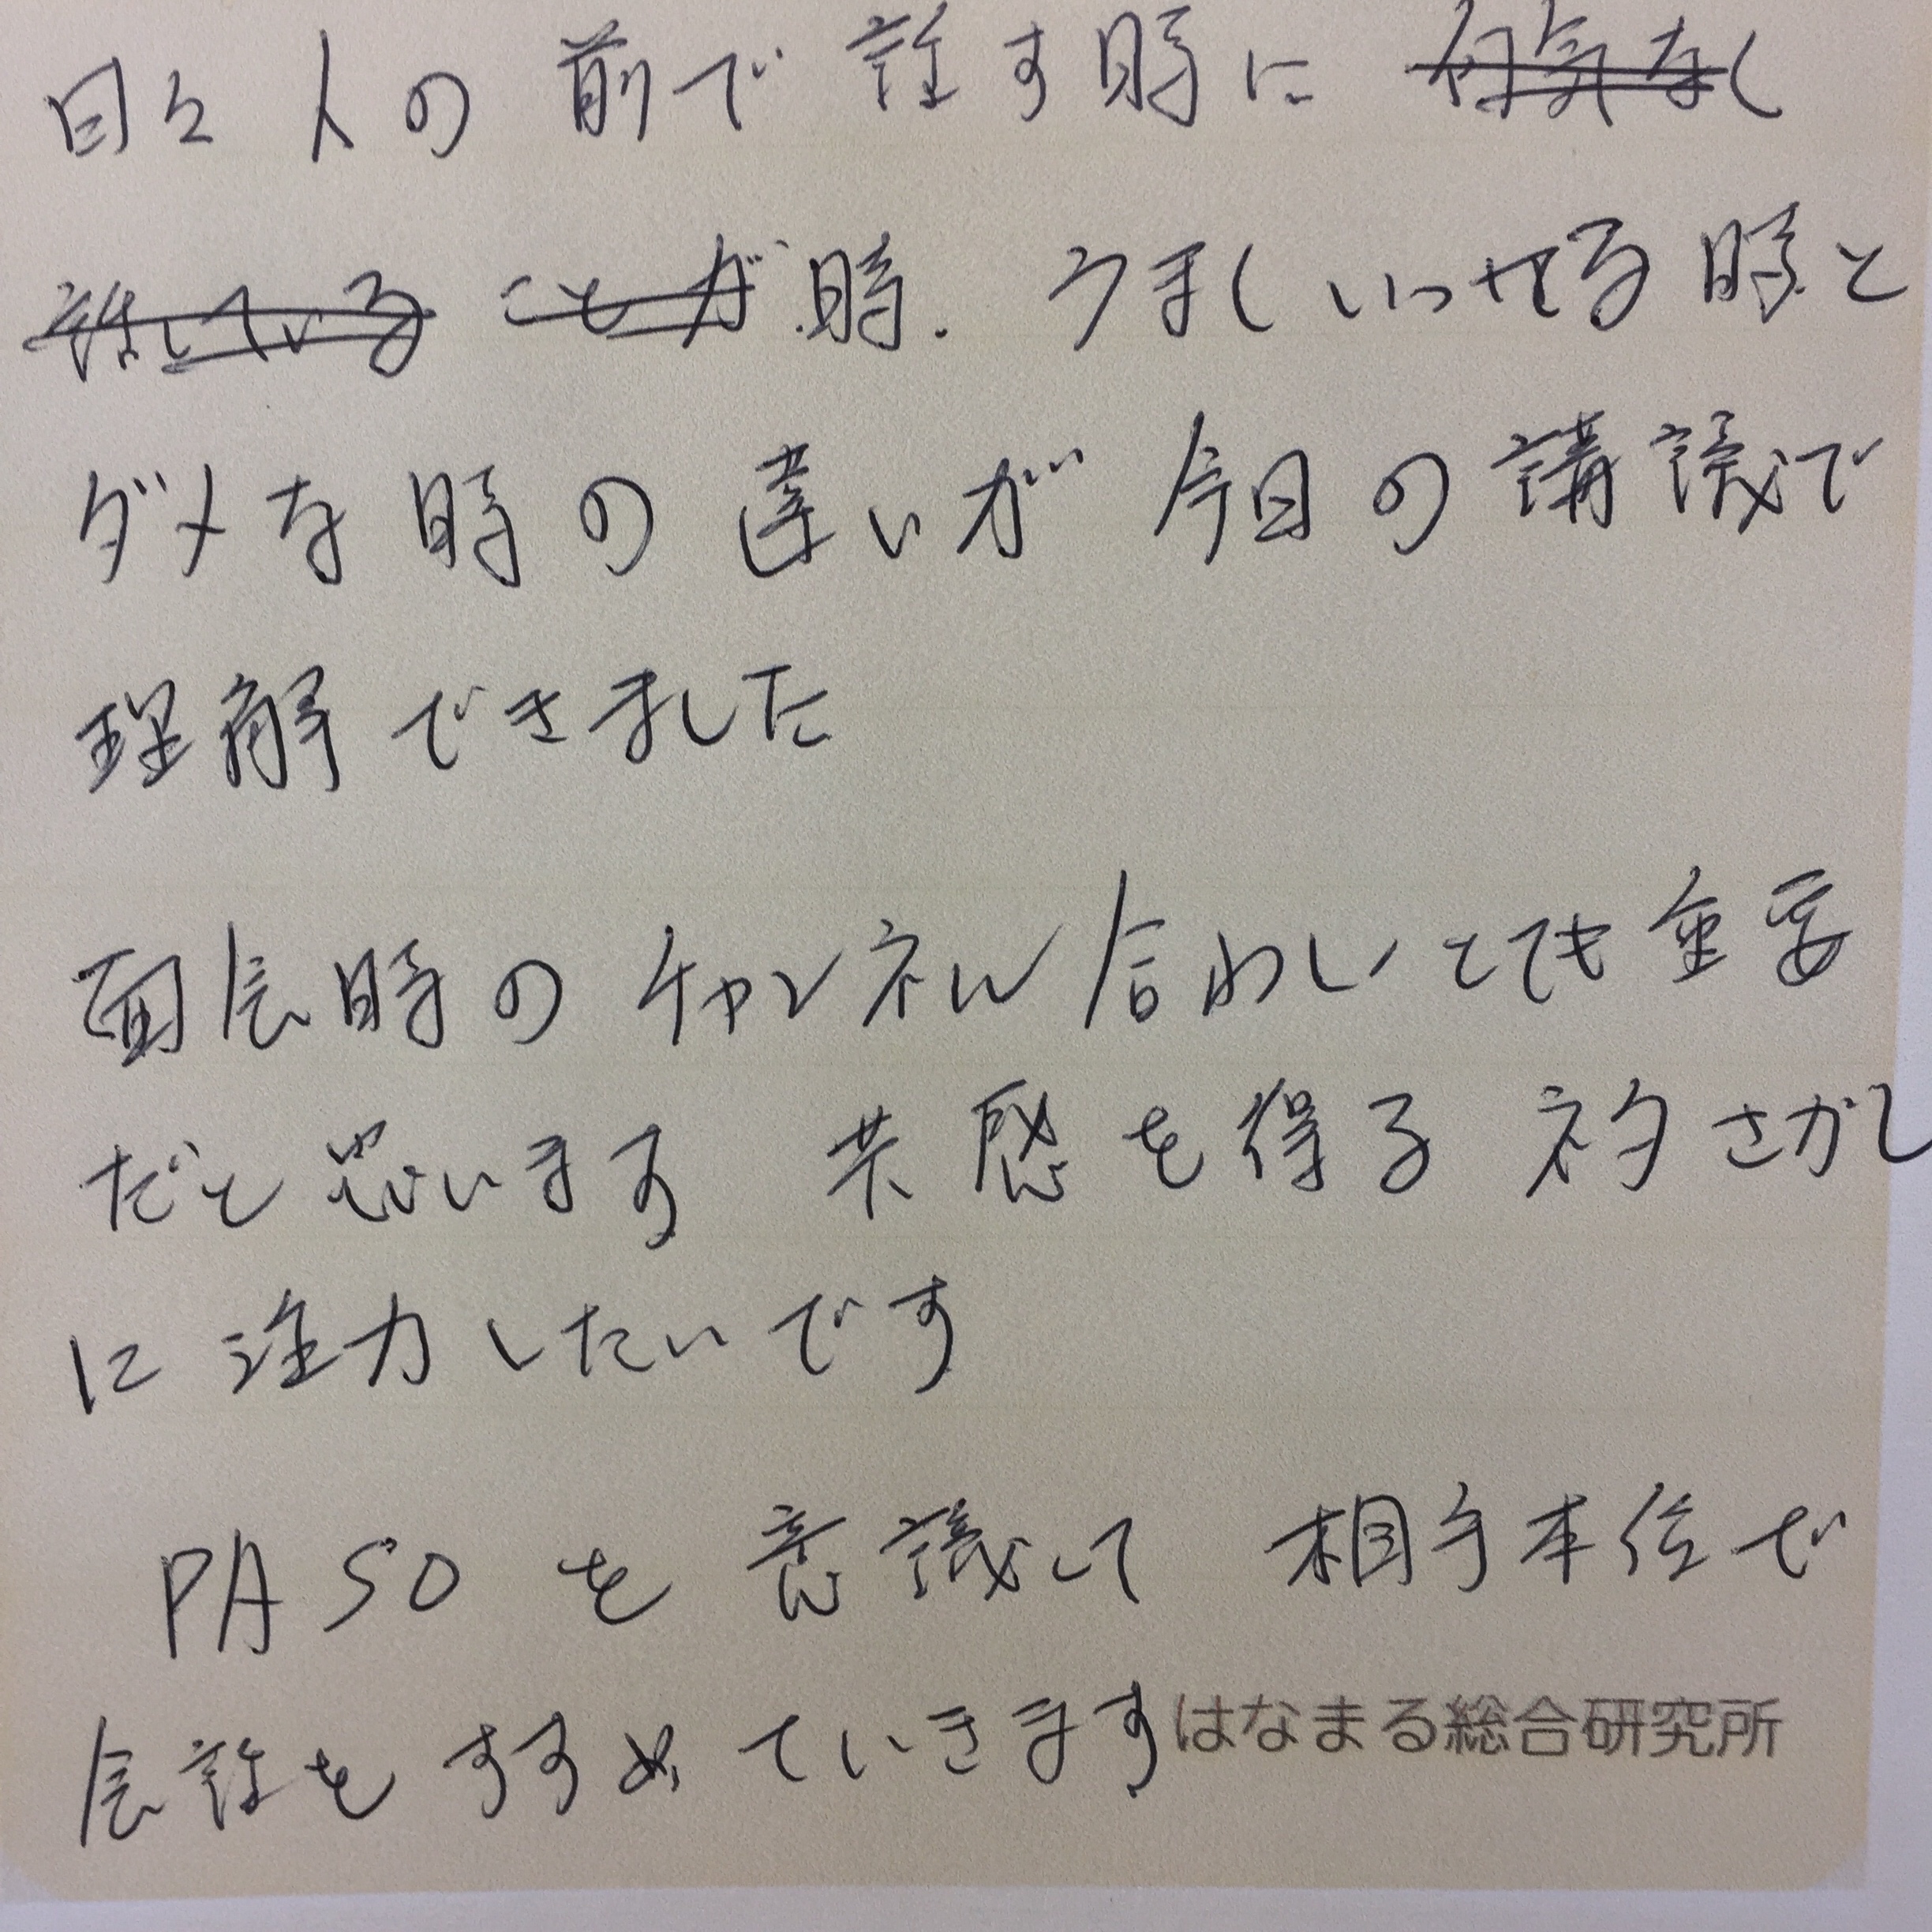 日々人の前で話す時に 何気なく
話している ことが 時. うまくいってる時と
ダメな時の違いが 今日の講議で
理解できました
面会時のチャンネル合わしいとても重要
だと思います 共感を得るネタさがし
に注力したいです
PASOを意識して 相手本位で
会話をすすめていきます はなまる総合研究所